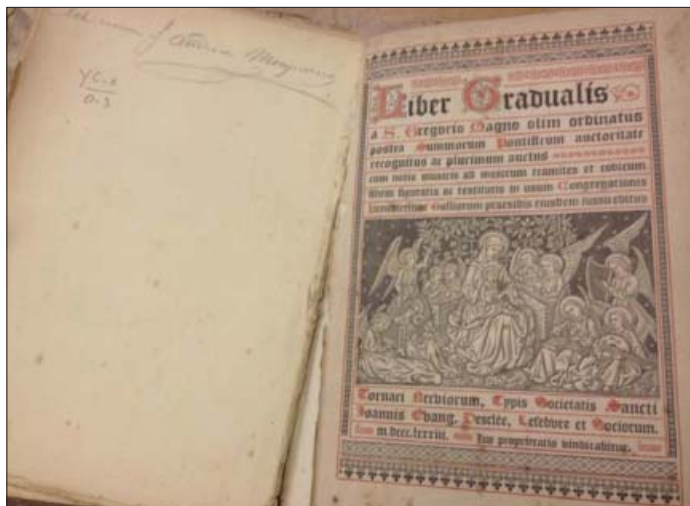 Liber Gradualis
a S. Gregorio Magno olim ordinatus
postea Summorum Pontificum auctoritate
recognitus ac plurimum auctus
cum notis musicis ad majorum tramites et codicum
fidem figuratis ac restitutis in usum Congregationis
Benedictinae Galliarum praesidis ejusdem jussu editus
Tornaci Nerviorum, Typis Societatis Sancti
Joannis Evang. Desclée, Lefebvre et Sociorum.
m.dccc.lxxxiii. Jus proprietatis vindicabitur.